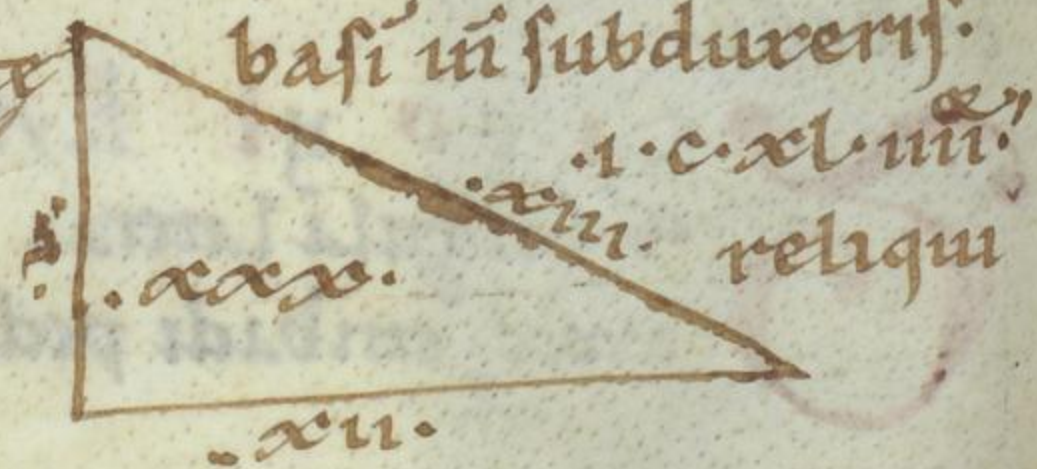 basi in̄ subduxeris.
.i.c.xl.iiii.
.xiii.
reliqui
.xxx.
.xii.